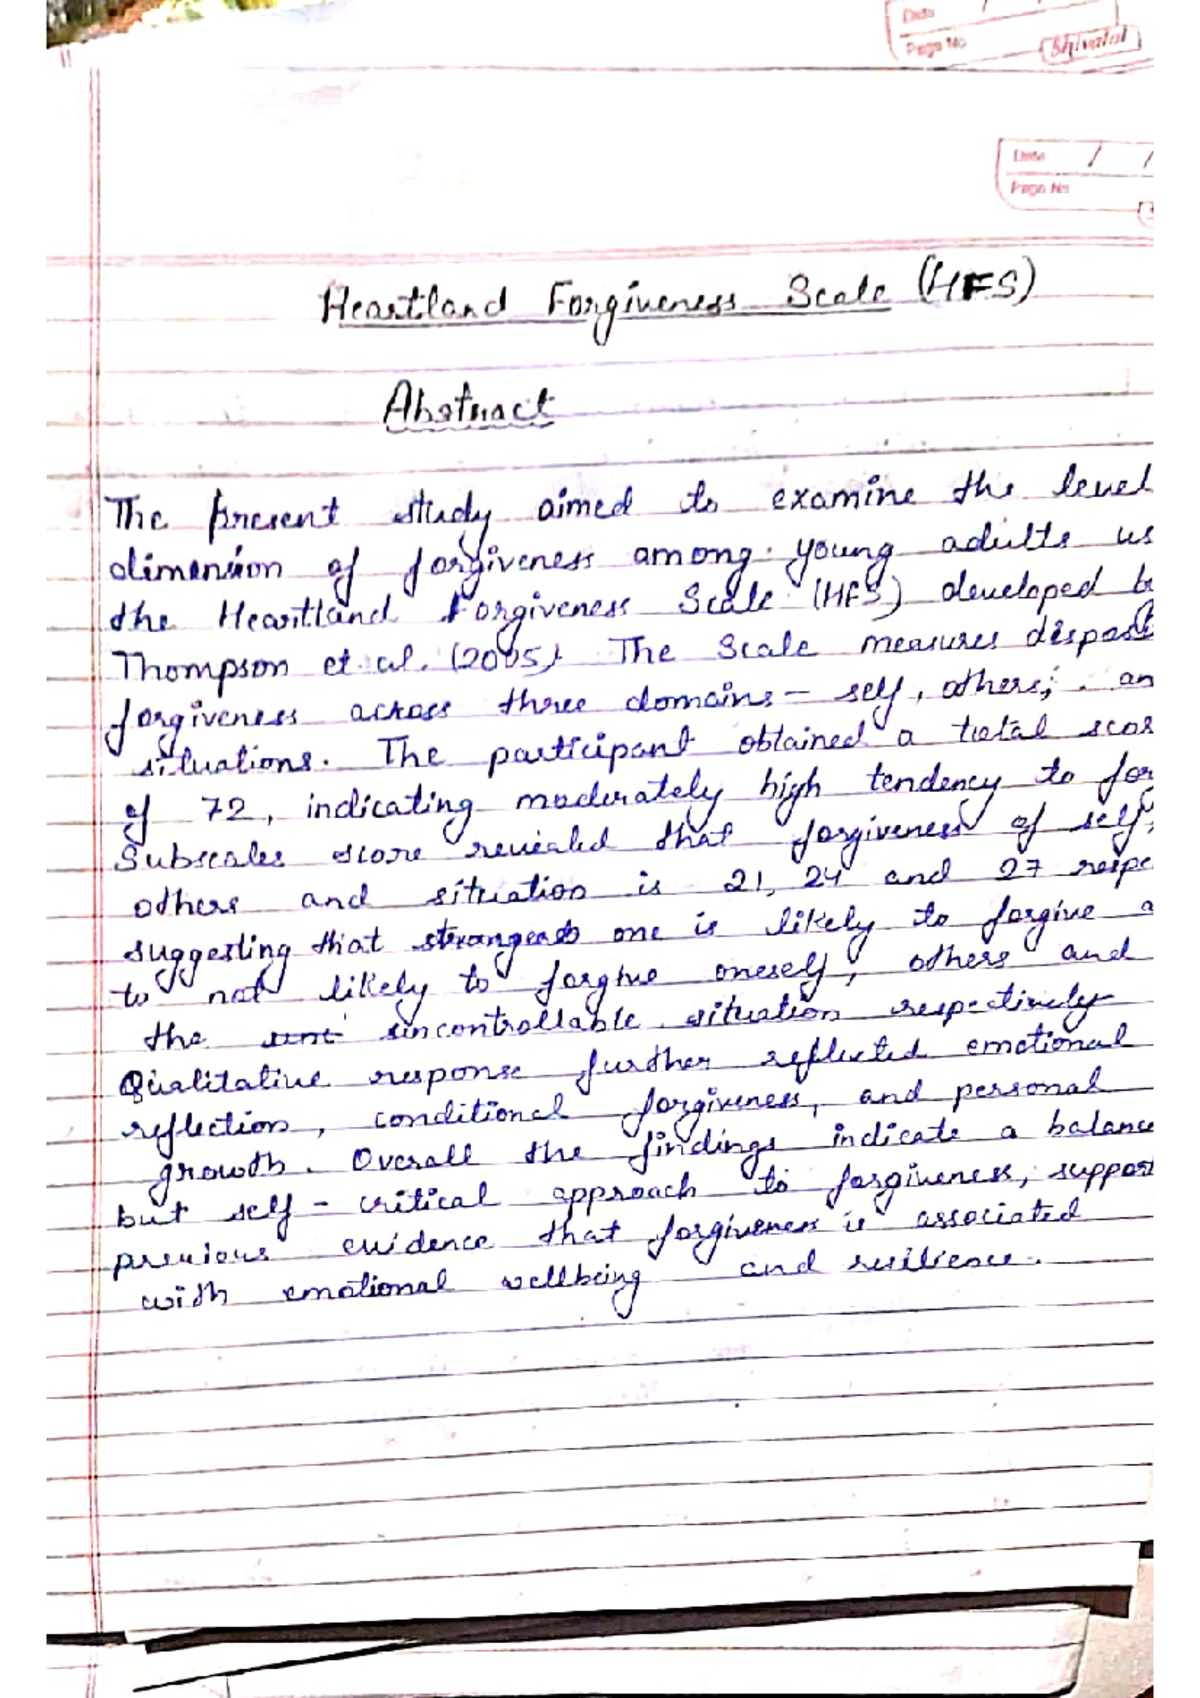 Date / /
Page No
Shivalal
Date / /
Page No
Heartland Forgiveness Scale (HFS)
Abstract
The present study aimed to examine the level
dimension of forgiveness among young adults us
the Heartland Forgiveness Scale (HFS) developed b
Thompson et al. (2005). The Scale measures disposit
forgiveness across three domains – self, others, an
situations. The participant obtained a total scor
of 72, indicating moderately high tendency to for
Subscales score revealed that forgiveness of self,
others and situation is 21, 24 and 27 respe
suggesting that one is likely to forgive a
to not likely to forgive oneself, others and
the uncontrollable situation respectively
Qualitative response further reflected emotional
reflection, conditional forgiveness, and personal
growth. Overall the findings indicate a balance
but self-critical approach to forgiveness, support
previous evidence that forgiveness is associated
with emotional wellbeing and resilience.